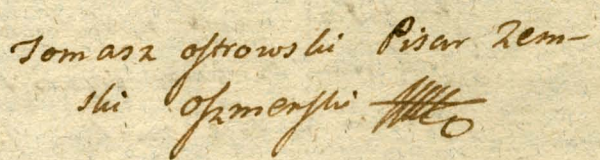 Tomasz Ostrowski Pisar Zem-
ski Oszmenski